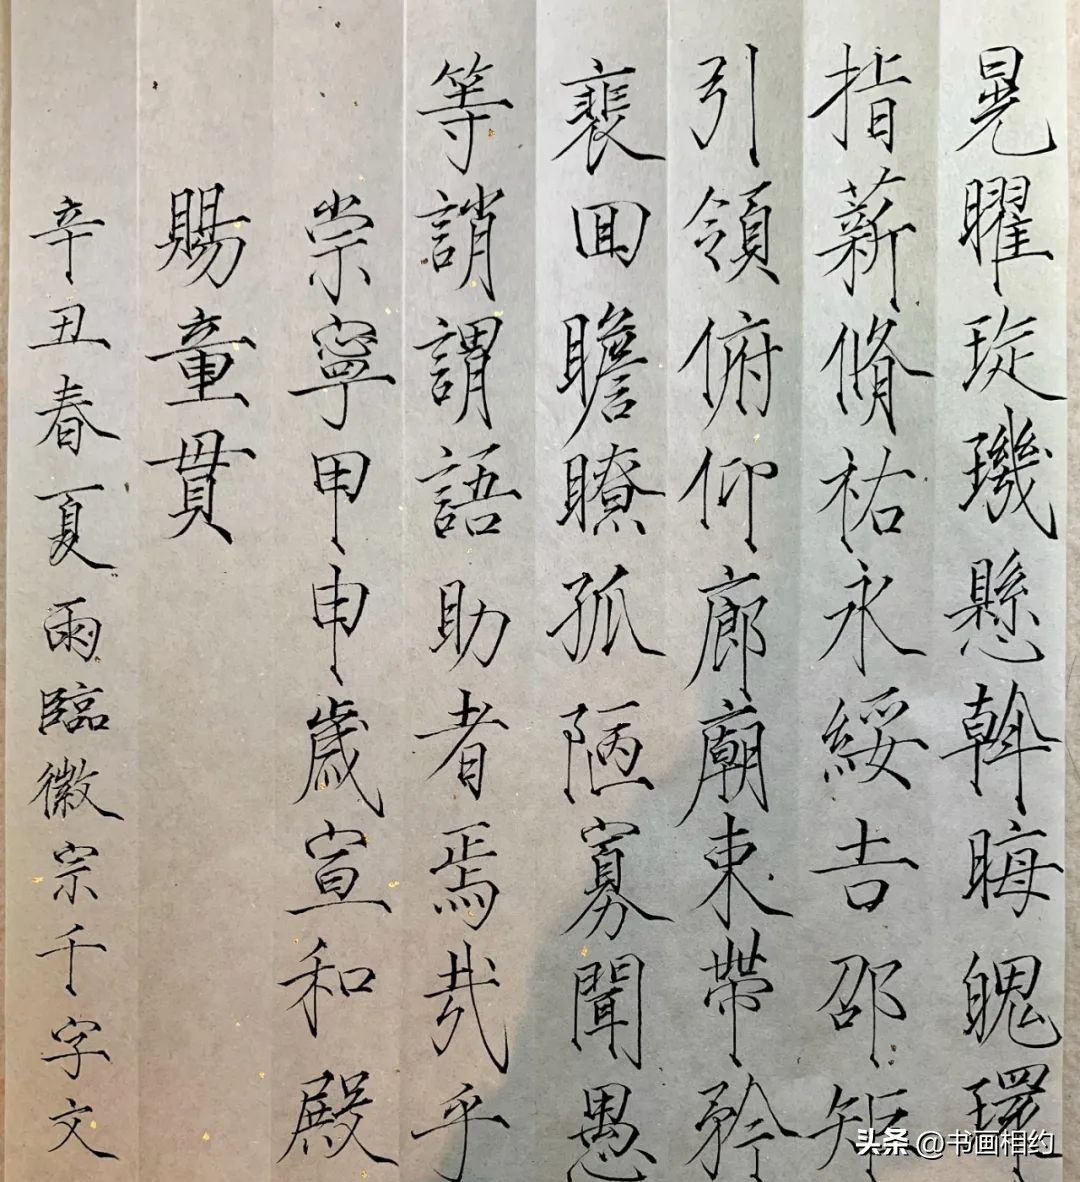 晃曜琁璣懸斡晦魄環
指薪脩祐永綏吉邵矩
引領俯仰廊廟束帶矜
裵回瞻瞭孤陋寡聞愚
等誚謂語助者焉哉乎
崇寧甲申歲宣和殿
賜童貫
辛丑春夏雨臨徽宗千字文
头条 @书画相约